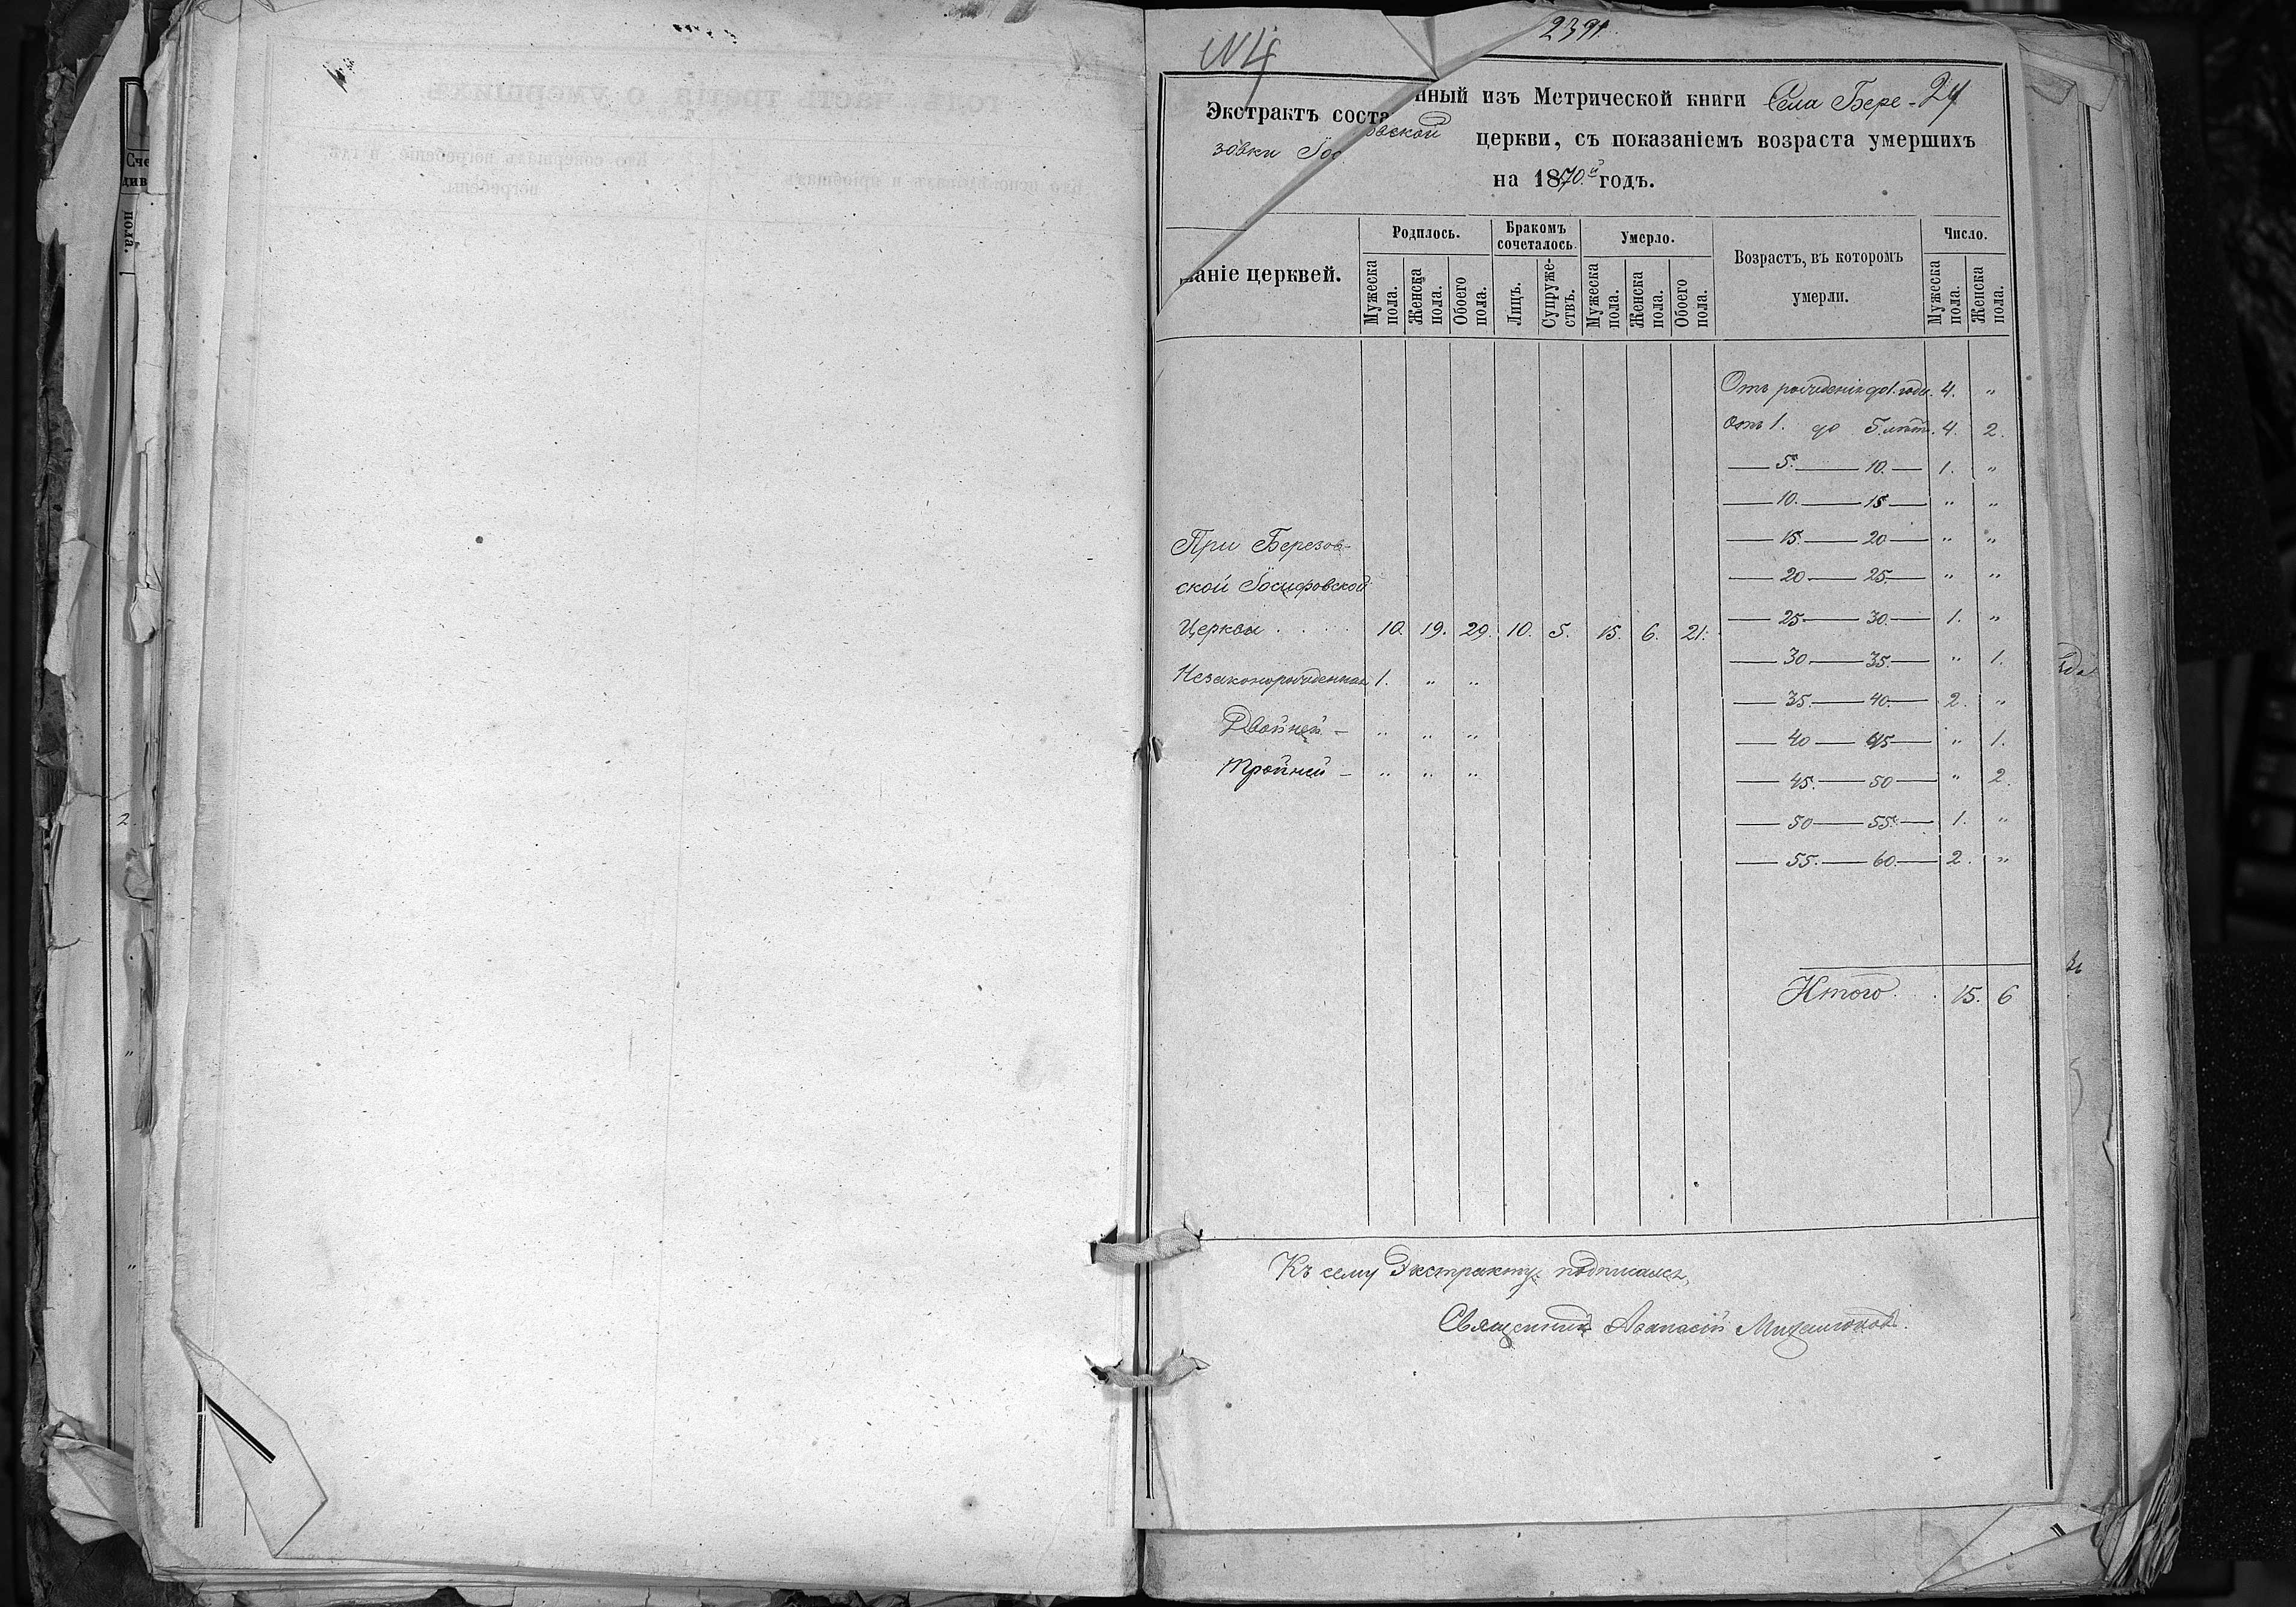 2391.
N 4
Экстрактъ соста нный изъ Метрической книги Села Бере- 24
зовки Іос вской церкви, съ показаніемъ возраста умершихъ
на 1870й годъ.
ваніе церквей.
Родилось.
Бракомъ сочеталось.
Умерло.
Возрастъ, въ которомъ
умерли.
Число.
Мужеска пола.
Женска пола.
Обоего пола.
Лицъ.
Супружествъ.
Мужеска пола.
Женска пола.
Обоего пола.
Мужеска пола.
Женска пола.
Отъ рожденія до 1. года. 4. "
Отъ 1. до 5. лѣтъ. 4. 2.
— 5. — 10. — 1. "
— 10. — 15 — " "
— 15. — 20 — " "
— 20 — 25. — " "
— 25 — 30. — 1. "
— 30 — 35. — " 1.
— 35. — 40. — 2. "
— 40 — 45 — " 1.
— 45. — 50 — " 2.
— 50 — 55. — 1. "
— 55. — 60. — 2. "
Итого. 15. 6
При Березов-
ской Іосифовской
Церкви . . . . 10. 19. 29. 10. 5. 15. 6. 21.
Незаконорожденныхъ 1. " "
Двойней — " " "
Тройней — " " "
Къ сему Экстракту подписался,
Священникъ Аѳанасій
Сче
див
пола.
2.